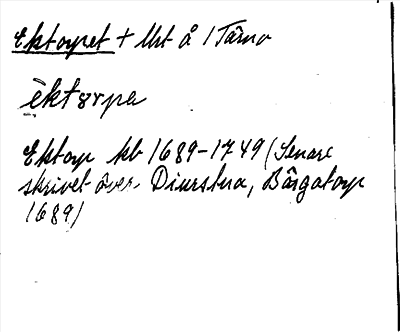 Ektorpet + Ust å / Tärna
èktørpa
Ektorp kb 1689-1749 (Senare
skrivet över Diurstua, Bärgatorp
1689)